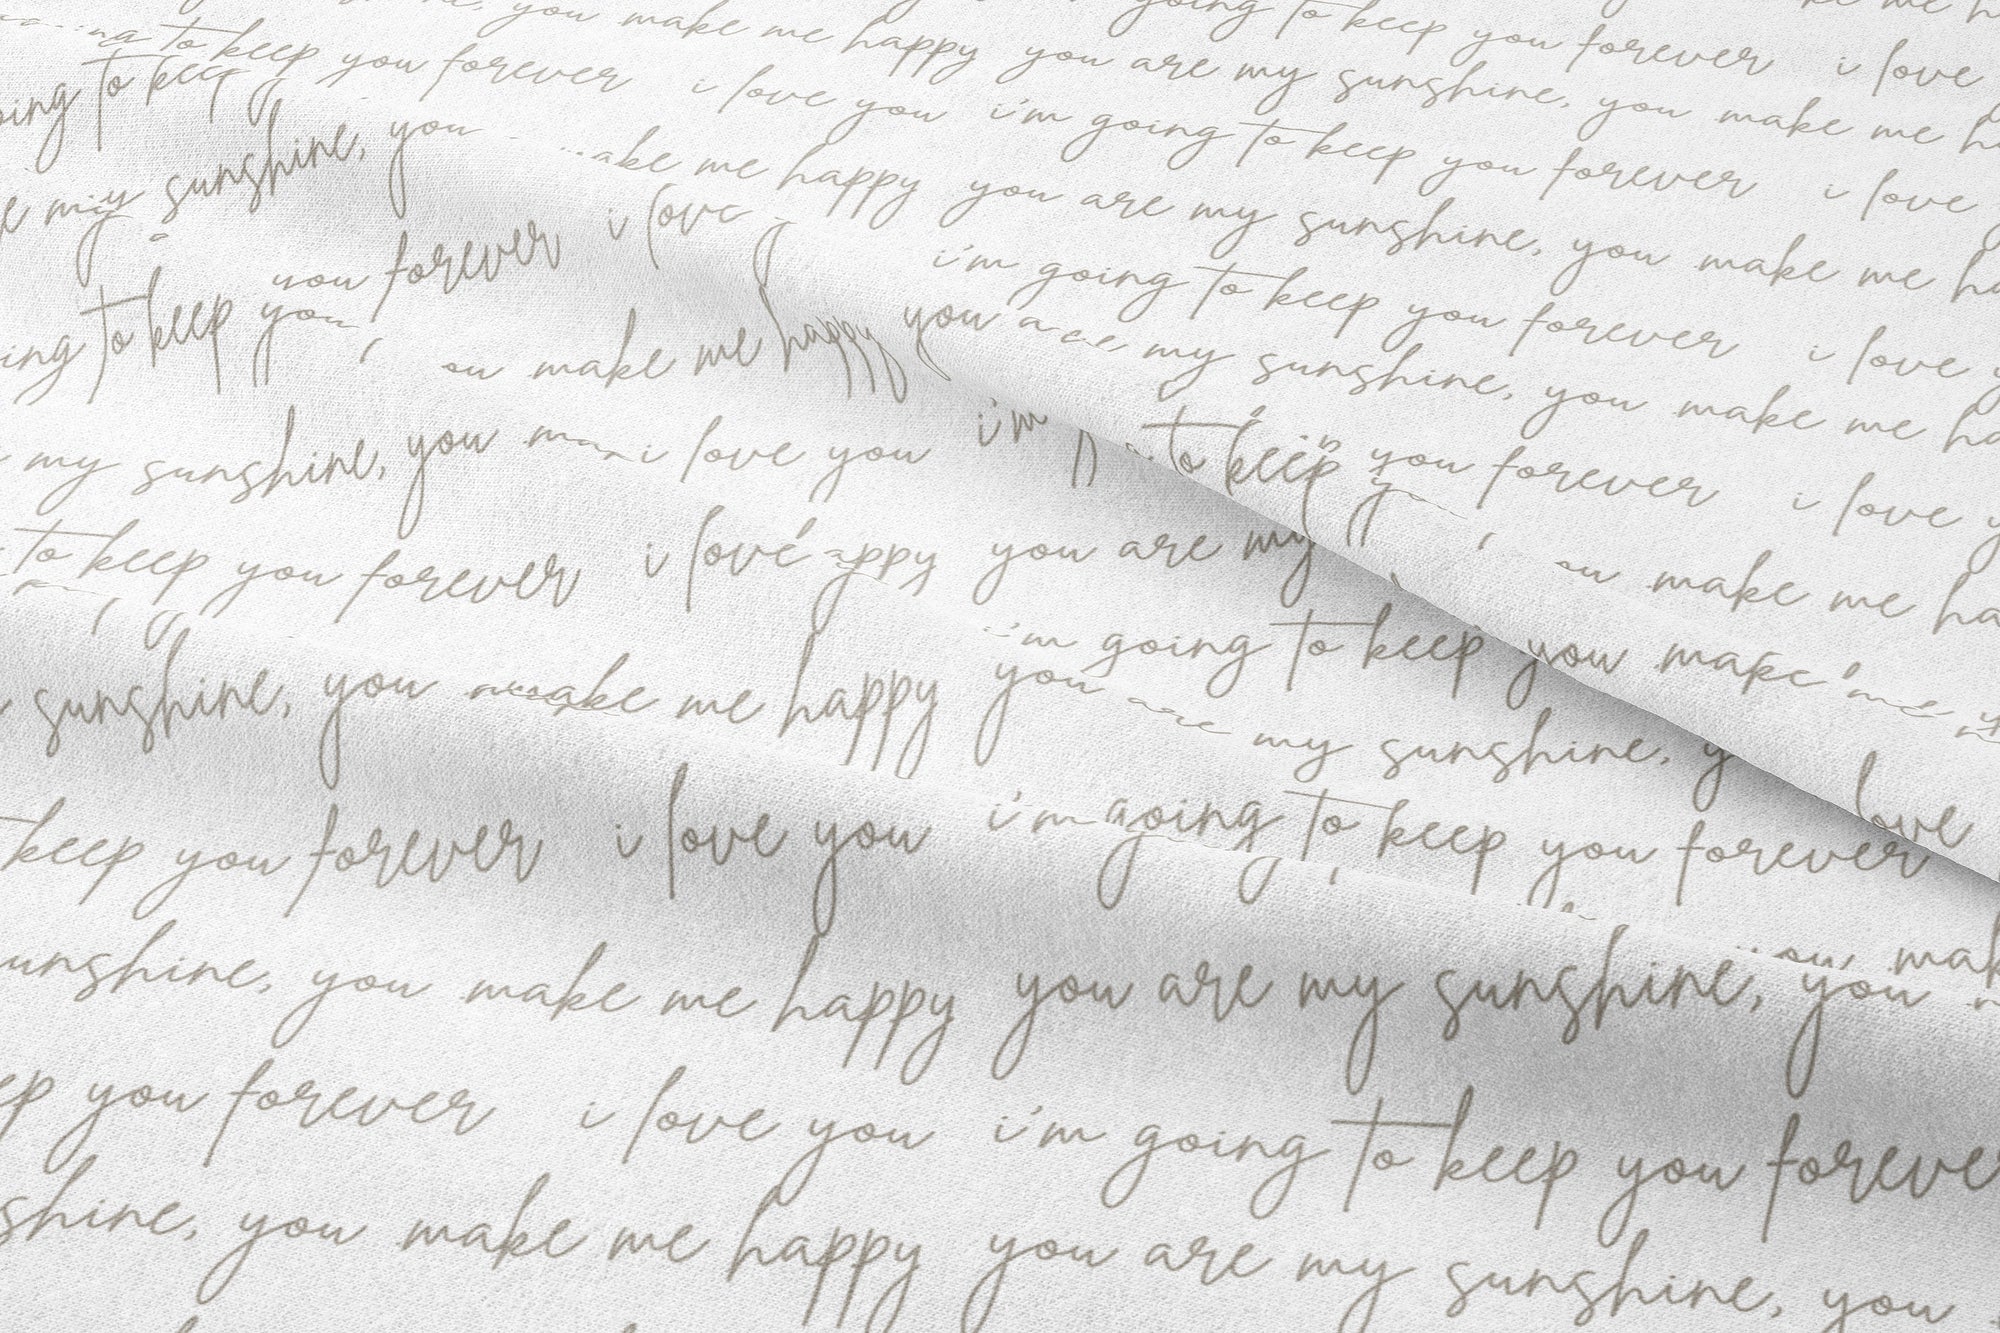 you make me happy
going to keep you forever i love
to keep you forever i love you i'm going to keep you forever i love
you are my sunshine, you make me
my sunshine, you make me happy you are my sunshine, you make me
you forever i love i'm going to keep you forever i love
to keep you make me happy you my sunshine, you make me
my sunshine, you i love you i'm to keep you forever i love
to keep you forever i love you are my make me
i'm going to keep you make
sunshine, you make me happy you are my sunshine, love
keep you forever i love you i'm going to keep you forever
you make me happy you are my sunshine, you
you forever i love you i'm going to keep you
you make me happy you are my sunshine, you